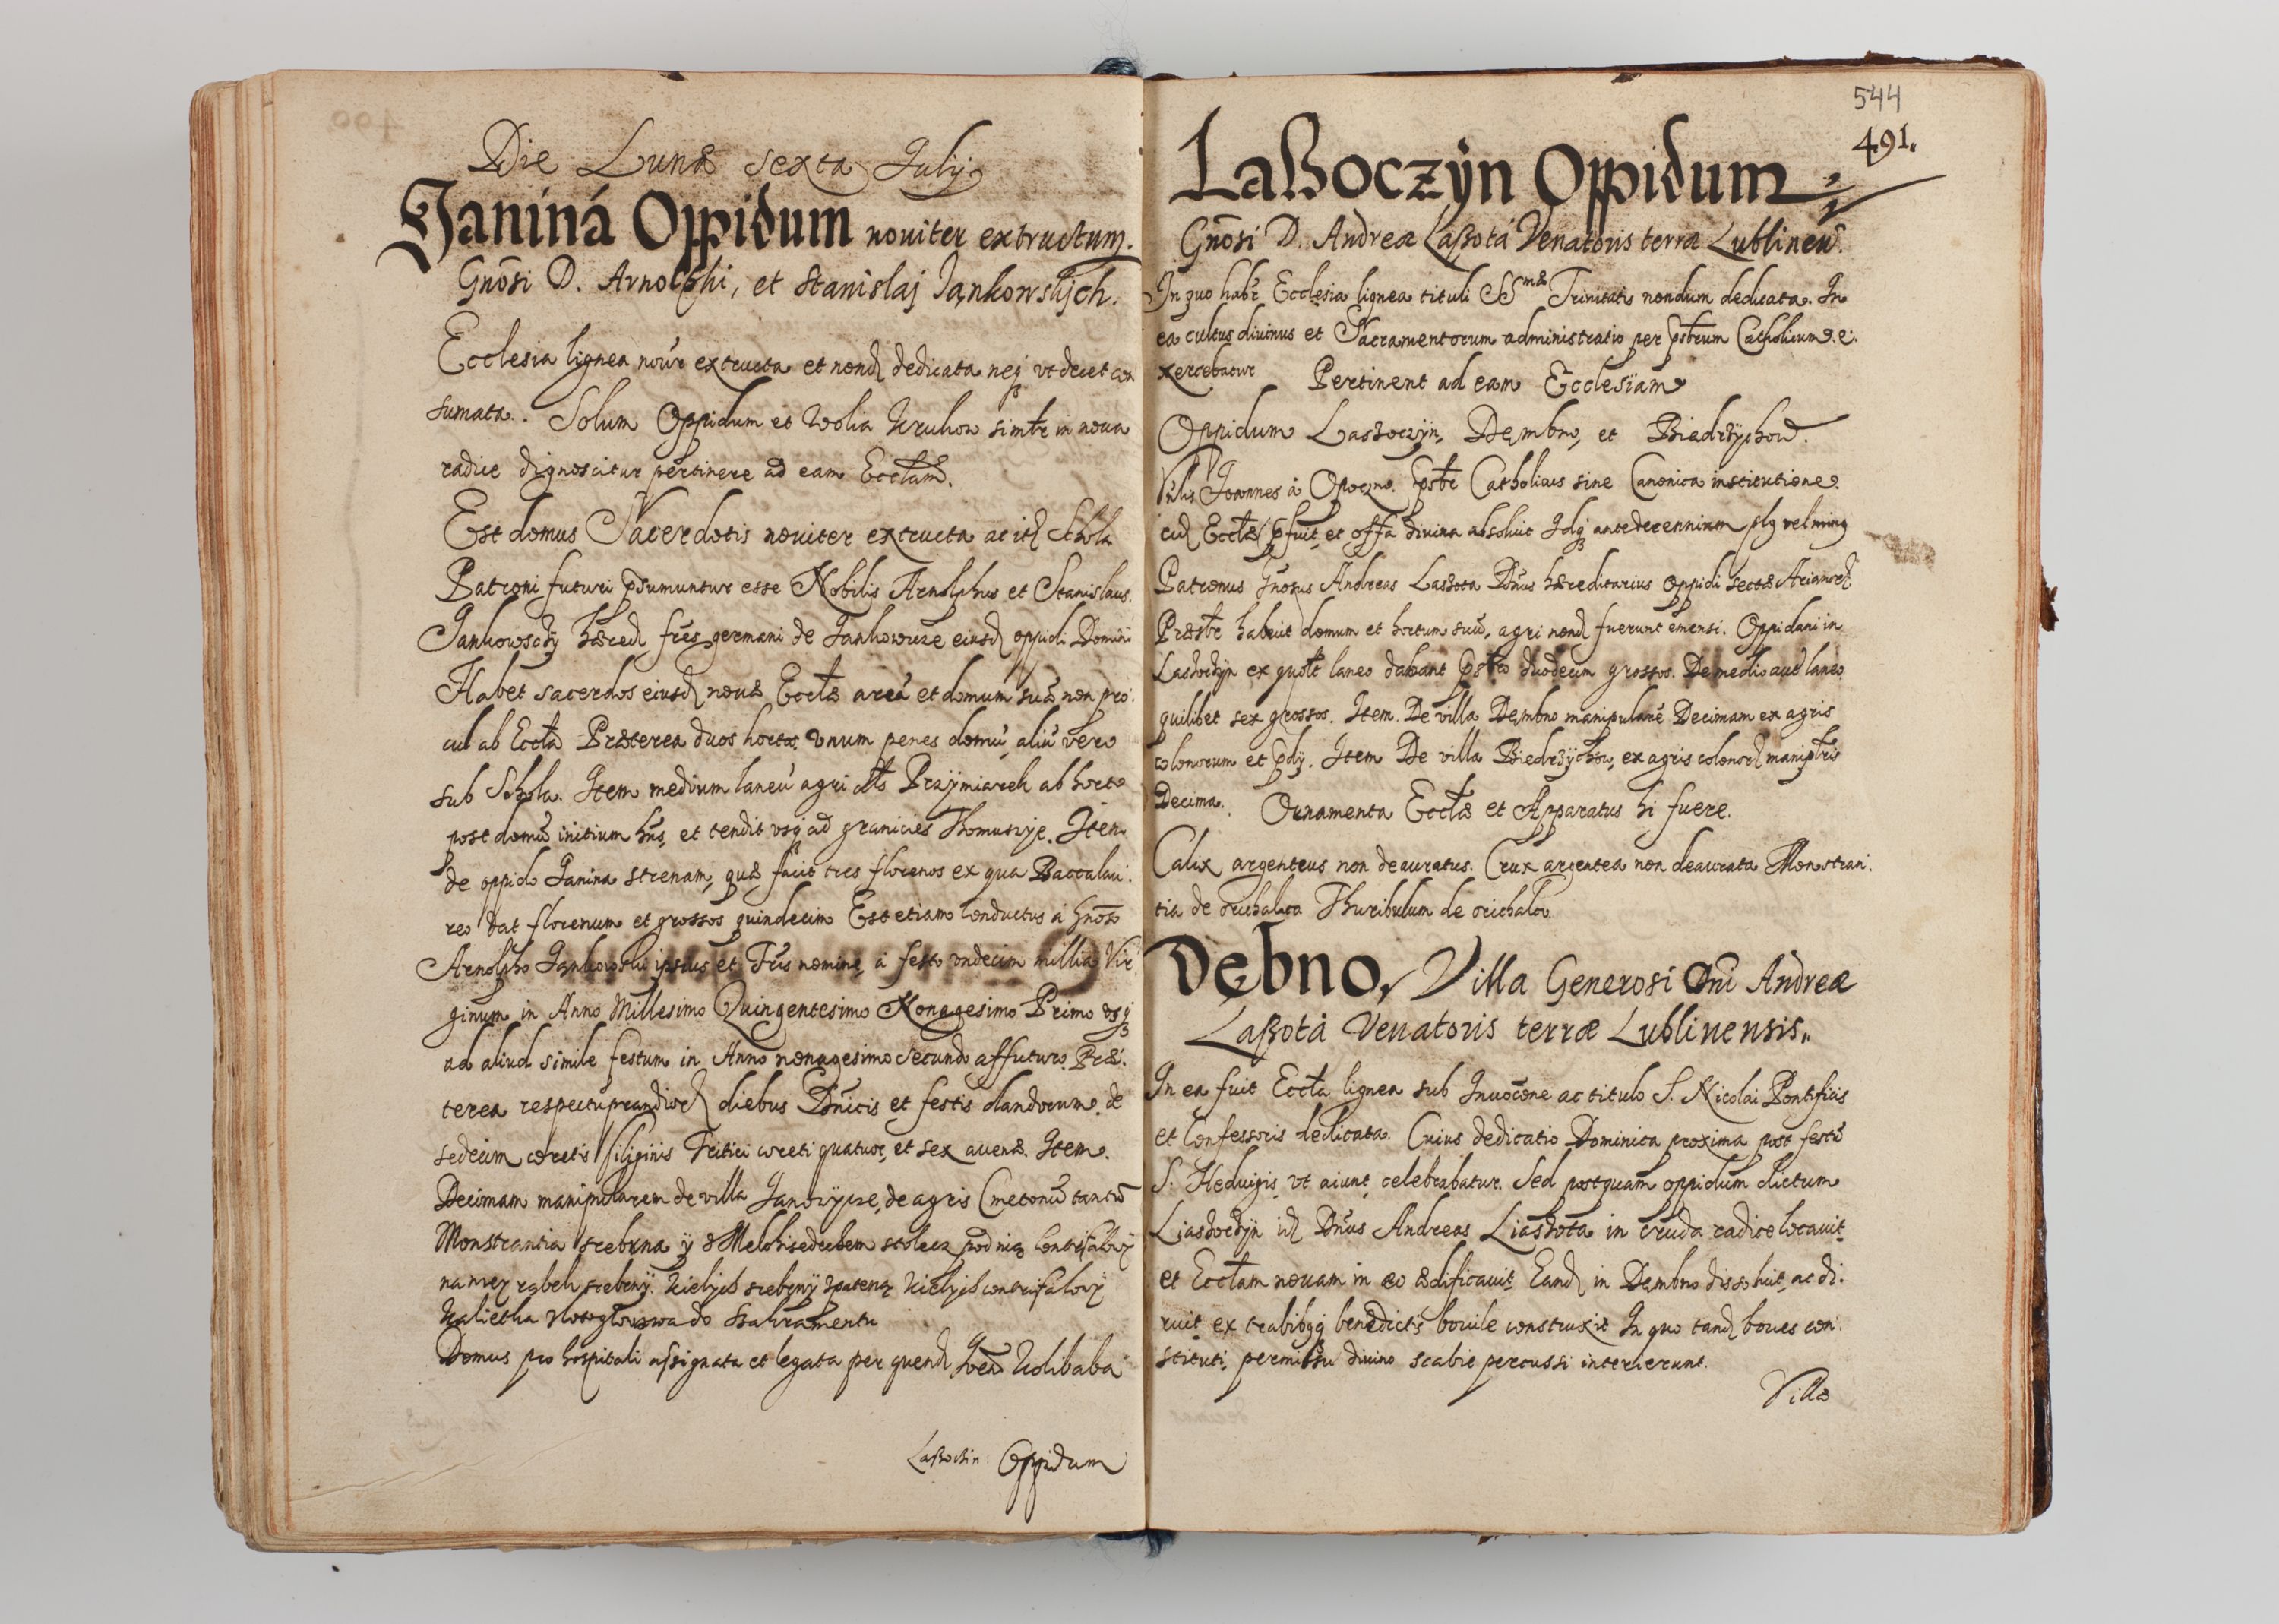 Die Lunæ sexta Julij
Janiná Oppidum noviter extructum.
Gnōsi D. Arnolphi, et Stanislaj Jankowskjch.
Ecclesia lignea nouir extructa et nond dedicata neq vt decet con
sumata. Solum Oppidum et Wolia Kruhow simłr in noua
radice dignoscitur pertinere ad eam Eccłam.
Est domus Sacerdotis nouiter extructa ac itd Schola
Patroni futuri psumuntur esse Nobilis Arnolphus et Stanislaus
Jankowscÿ hæred fres germani de Jankowicze eiusd oppidi Domini
Habet sacerdos eiusd nouæ Ecctæ areā et domum suā non pro:
cul ab Eccła Præterea duos hortos vnum penes domū, aliū vero
sub Schola. Item medium laneū agri als Prazÿmiarek ab horto
post domū initium hns, et tendit vsq ad granicies Thomuszije. Item
de oppido Janina strenam, quæ facit tres florenos ex qua Baccalau:
reo dat florenum et grossos quindecim Est etiam conductus à Gnoso
Arnolpho Jankowski ipsius et Fris nomine, à festo vndecim millia Vir
ginum in Anno Millesimo Quingentesimo Nonagesimo Primo vsq
ad aliud simile festum in Anno nonagesimo secundo affuturo. Præ:
terea respectu prandior diebus Dnicis et festis dandorum. de
sedecim coretis siliginis Tritici coreti quatuor, et sex auenæ. Item.
Decimam manipularem de villa Janczÿcze, de agris Cmetonū tantū
Monstrantia srebrna ÿ s Melchisedechem stolecz pod nię contrifałowÿ
na nieÿ rąbek srebrnÿ. Kielych srebrnÿ spateną kielych contrifałowÿ
Kalietka do Sakramentu
Domus pro hospitali assignata et legata per quend Joēn Kolibaba
Laßochin Oppidum
544
491.
Laßoczÿn Oppidum
Gnōsi D. Andreæ Laßotá Venatoris terræ Lublineñ.
In quo habr Ecclesia lignea tituli SSmæ Trinitatis nondum dedicata. In
ea cultus divinus et Sacramentorum administratio per pstrum Catholicum e:
xercebatur Pertinent ad eam Ecclesiam
Oppidum Laszoczÿn, Dembno, et Biedrzÿchow.
Vnlis Joannes à Opoczno. Pstr Catholicus sine Canonica institutione.
eid Ecctæ pfuit, et offa divina absoluit Idq ante decennium pls vel minus
Patronus Gnosus Andreas Laszota Dnus hæreditarius oppidi sectæ Arianor
Præstr habuit domum et hortum suū, agri nond fuerunt emensi. Oppidani in
Laszoczÿn ex quolt laneo dabant pstro duodecim grossos. De medio aut laneo
quilibet sex grossos. Item. De villa Dembno manipularē Decimam ex agris
colonorum et pdij. Item De villa Biedrzÿchow, ex agris colonor manipłris
Decima. Ornamenta Ecctæ et Apparatus hi fuere.
Calix argenteus non deauratus. Crux argentea non deaurata Monstran:
tia de orichalco Thuribulum de orichalco
Dębno, Villa Generosi Dni Andreæ
Laßotá Venatoris terræ Lublinensis.
In ea fuit Eccła lignea sub Inuocōne ac titulo S. Nicolai Pontificis
et Confessoris dedicata. Cuius dedicatio Dominica proxima post festū
S. Heduigis vt aiunt celebrabatur. Sed postquam oppidum dictum
Liaszoczÿn id Dnus Andreas Liaszota in cruda radice locauit
et Eccłam nouam in eo ædificauit Eand in Dembno dissoluit, ac di:
ruit ex trabibqq benedictis bouile construxit In quo tand boues con:
stituti, permissu diuino scabie percussi interierunt.
Villæ